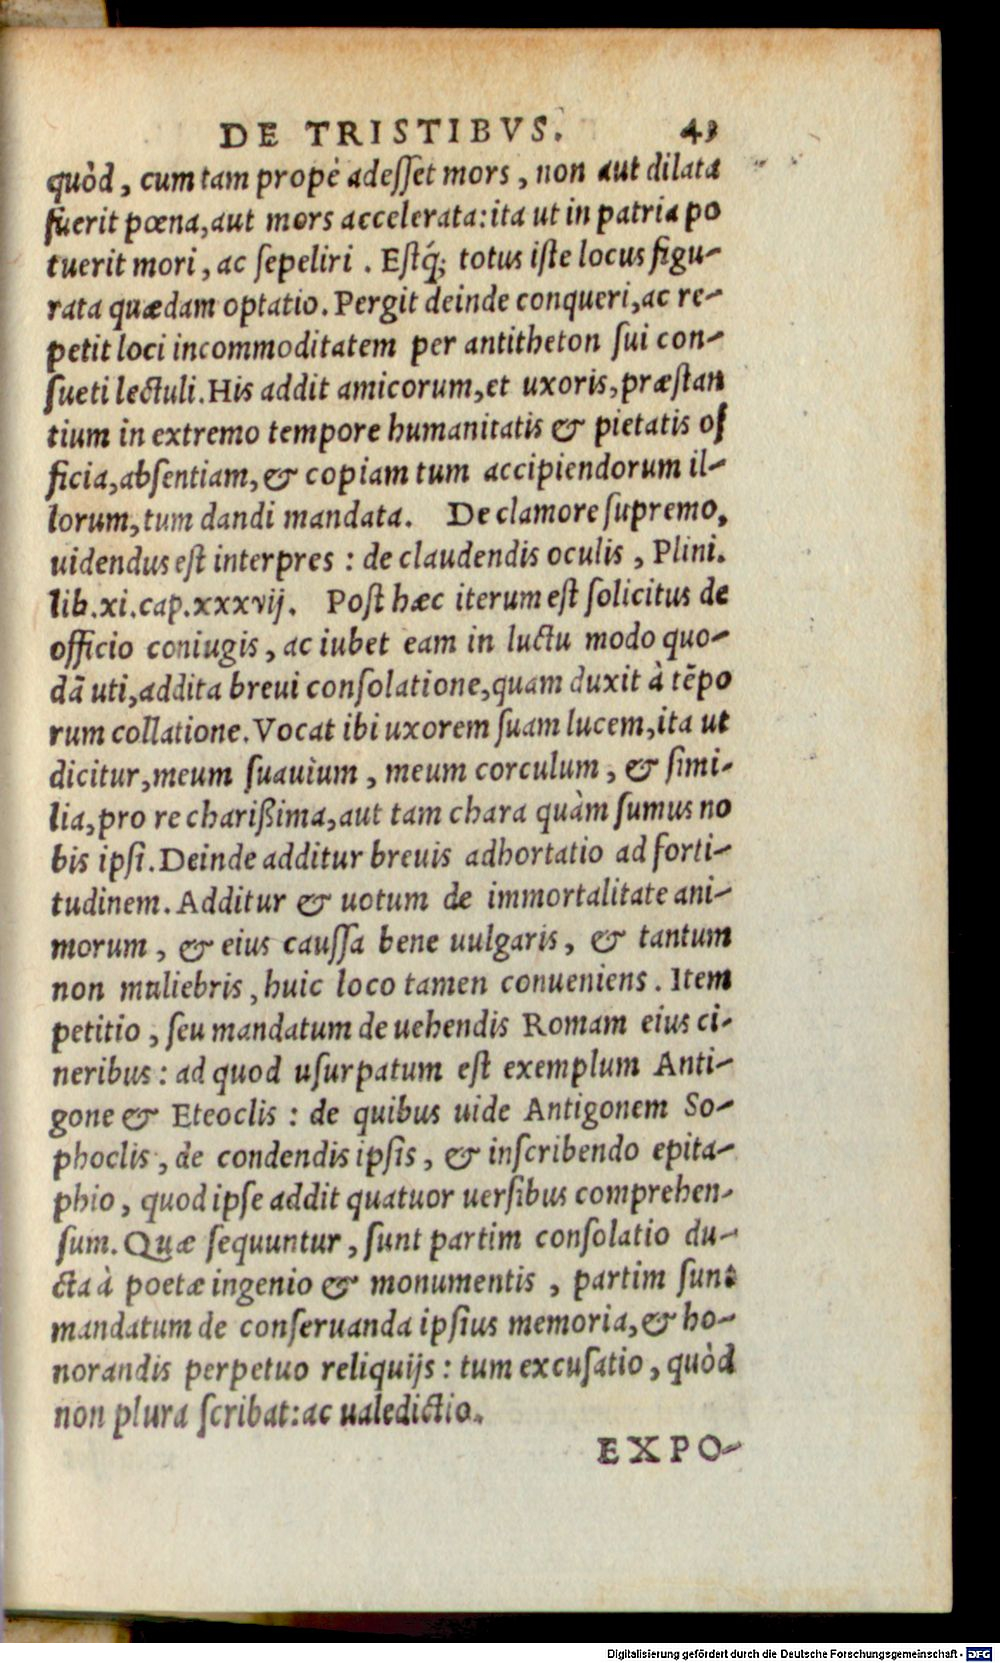 DE TRISTIBVS. 43
quòd, cum tam propè adeſſet mors, non aut dilata
fuerit pœna, aut mors accelerata: ita ut in patria po
tuerit mori, ac ſepeliri. Eſtq́; totus iſte locus figu-
rata quædam optatio. Pergit deinde conqueri, ac re-
petit loci incommoditatem per antitheton ſui con-
ſueti lectuli. His addit amicorum, et uxoris, præſtan
tium in extremo tempore humanitatis & pietatis of
ficia, abſentiam, & copiam tum accipiendorum il-
lorum, tum dandi mandata. De clamore ſupremo,
uidendus eſt interpres: de claudendis oculis, Plini.
lib.xi.cap.xxxvij. Poſt hæc iterum eſt ſolicitus de
officio coniugis, ac iubet eam in luctu modo quo-
dā uti, addita breui conſolatione, quam duxit à tēpo
rum collatione. Vocat ibi uxorem ſuam lucem, ita ut
dicitur, meum ſuauium, meum corculum, & ſimi-
lia, pro re charißima, aut tam chara quàm ſumus no
bis ipſi. Deinde additur breuis adhortatio ad forti-
tudinem. Additur & uotum de immortalitate ani-
morum, & eius cauſſa bene uulgaris, & tantum
non muliebris, huic loco tamen conueniens. Item
petitio, ſeu mandatum de uehendis Romam eius ci-
neribus: ad quod uſurpatum eſt exemplum Anti-
gone & Eteoclis: de quibus uide Antigonem So-
phoclis, de condendis ipſis, & inſcribendo epita-
phio, quod ipſe addit quatuor uerſibus comprehen-
ſum. Quæ ſequuntur, ſunt partim conſolatio du-
cta à poetæ ingenio & monumentis, partim ſunt
mandatum de conſeruanda ipſius memoria, & ho-
norandis perpetuo reliquijs: tum excuſatio, quòd
non plura ſcribat: ac ualedictio.
EXPO-
Digitalisierung gefördert durch die Deutsche Forschungsgemeinschaft - DFG